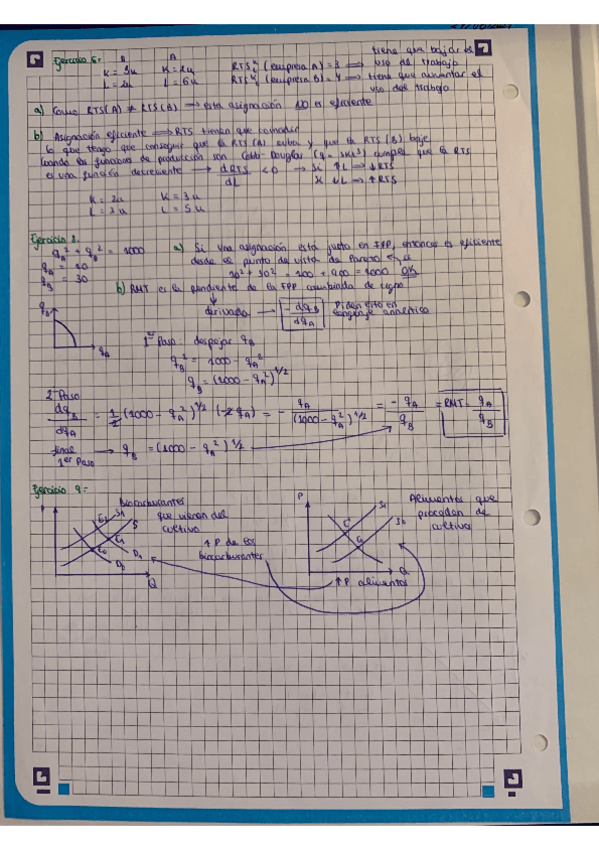 Ejercicio 6:
K = 3u K = 2u RTS (empresa A) = 3 ⟹ tiene que bajar el uso de trabajo
L = 6u RTS (empresa B) = 4 ⟹ tiene que aumentar el uso del trabajo
a) Como RTS(A) ≠ RTS(B) → esta asignación NO es eficiente
b) Asignación eficiente ⟹ RTS tienen que coincidir
lo que tengo que conseguir que la RTS(A) suba y que la RTS(B) baje
Cuando las funciones de producción son Cobb-Douglas cumple que la RTS
es una función decreciente → dRTS/dL < 0 → si ↑L → ↓RTS
si ↓L → ↑RTS
K = 2u K = 3u
L = 5u
Ejercicio
q_A² + q_B² = 1000 a) Si una asignación está justo en FPP, entonces es eficiente
q_A = 10 desde el punto de vista de Pareto
q_B = 30 10² + 30² = 100 + 900 = 1000 OK
b) RMT es la pendiente de la FPP cambiada de signo
derivada → - dq_B/dq_A Piden esto en lenguaje analítico
q_B
q_A
1er Paso: despejar q_B
q_B² = 1000 - q_A²
q_B = (1000 - q_A²)^1/2
2º Paso
dq_B/dq_A = 1/2 (1000 - q_A²)^1/2 (-2q_A) = - q_A/(1000 - q_A²)^1/2 = - q_A/q_B = RMT = q_A/q_B
final 1er Paso → q_B = (1000 - q_A²)^1/2
Ejercicio 9:
Biocarburantes que vienen del cultivo
S
D₁
D₀
Q
↑P de los biocarburantes
P
Alimentos que procedan de cultivo
S₁
Q
↑P alimentos